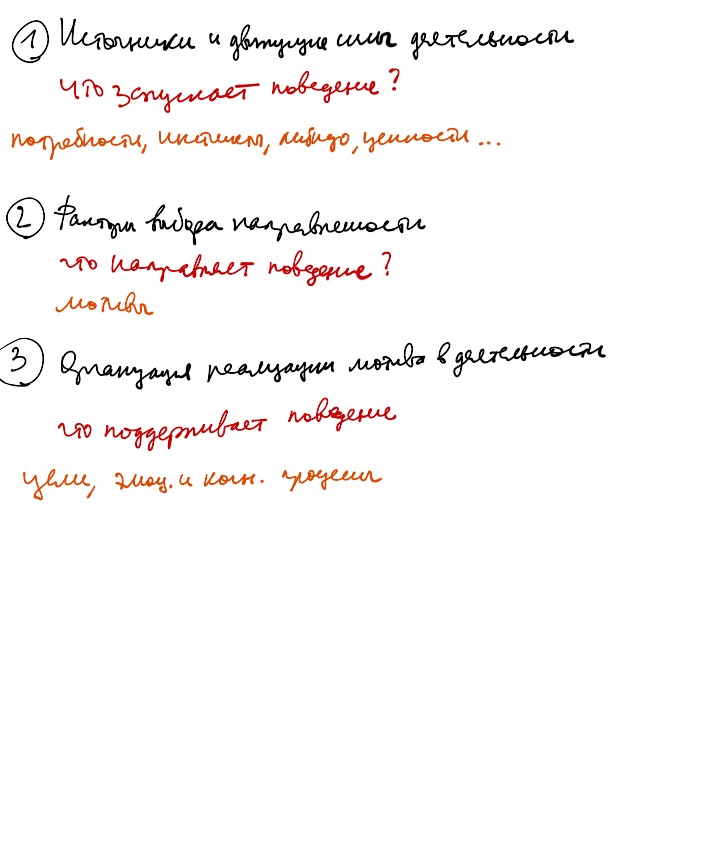 ① Источники и движущие силы деятельности
Что запускает поведение?
потребности, инстинкты, либидо, ценности...
② Факторы выбора направленности
что направляет поведение?
мотивы
③ Организация реализации мотива в деятельности
что поддерживает поведение
цели, эмоц. и когн. процессы